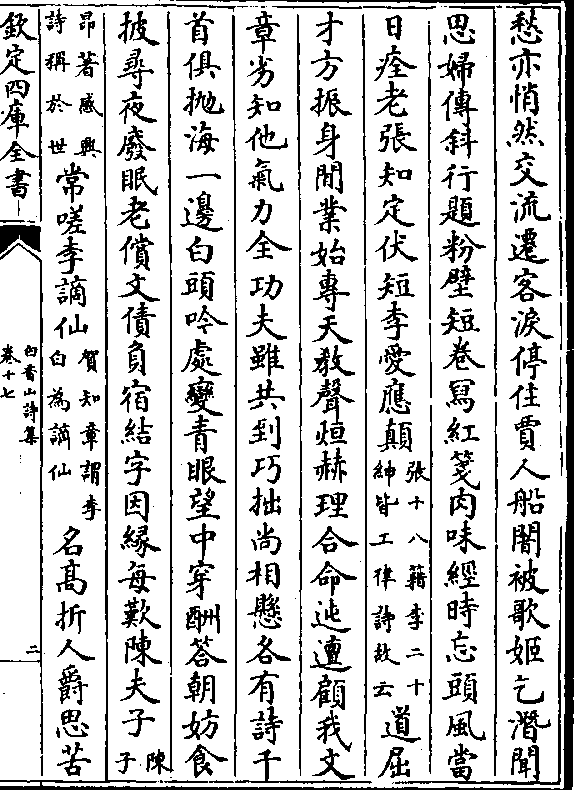 愁亦悄然交流遷客淚停住賈人船闇被歌姬乞潛聞
思婦傳斜行題粉壁短卷寫紅箋肉味經時忘頭風當
日痊老張知定伏短李愛應顛張十八籍李二十紳皆工律詩故云道屈
才方振身閒業始專天教聲烜赫理合命迍邅顧我文
章劣知他氣力全功夫雖共到巧拙尚相懸各有詩千
首俱拋海一邊白頭吟處變青眼望中穿酬答朝妨食
披尋夜廢眠老償文債負宿結字因緣每歎陳夫子陳子
昂著感興詩稱於世常嗟李謫仙賀知章謂李白為謫仙名髙折人爵思苦
欽定四庫全書
白香山詩集
卷十七
二